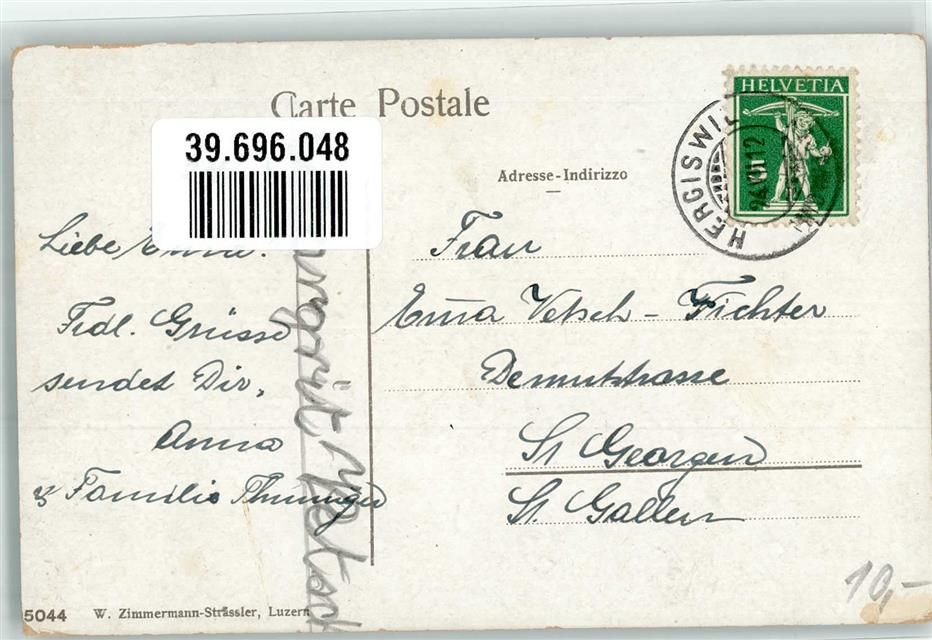 Carte Postale
39.696.048
Adresse-Indirizzo
HELVETIA
5
HERGISWIL
Liebe Emma!
Frdl. Grüsse
sendet Dir,
Anna
& Familie
Frau
Emma Vetsch - Fichter
Demutstrasse
St Georgen
St. Gallen
Vetsch
10,-
5044 W. Zimmermann-Strässler, Luzern